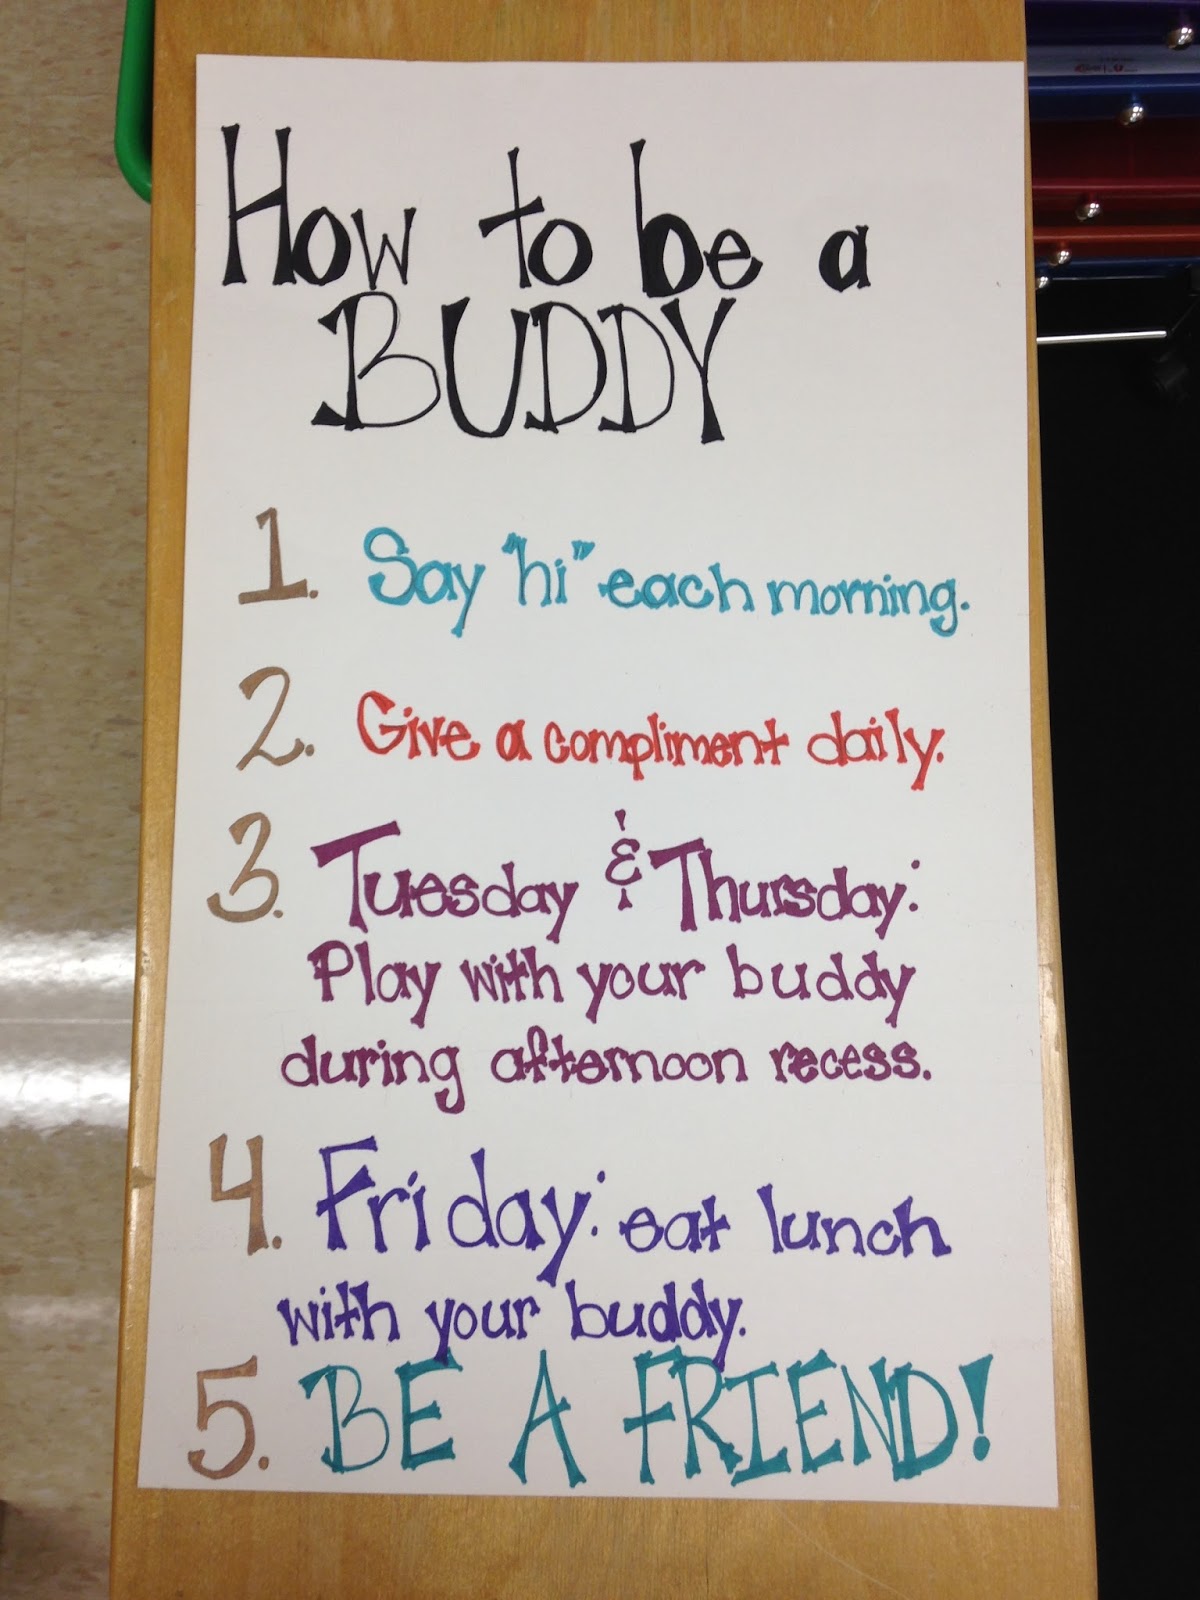 How to be a
BUDDY
1. Say "hi" each morning.
2. Give a compliment daily.
3. Tuesday & Thursday:
Play with your buddy
during afternoon recess.
4. Friday: eat lunch
with your buddy.
5. BE A FRIEND!